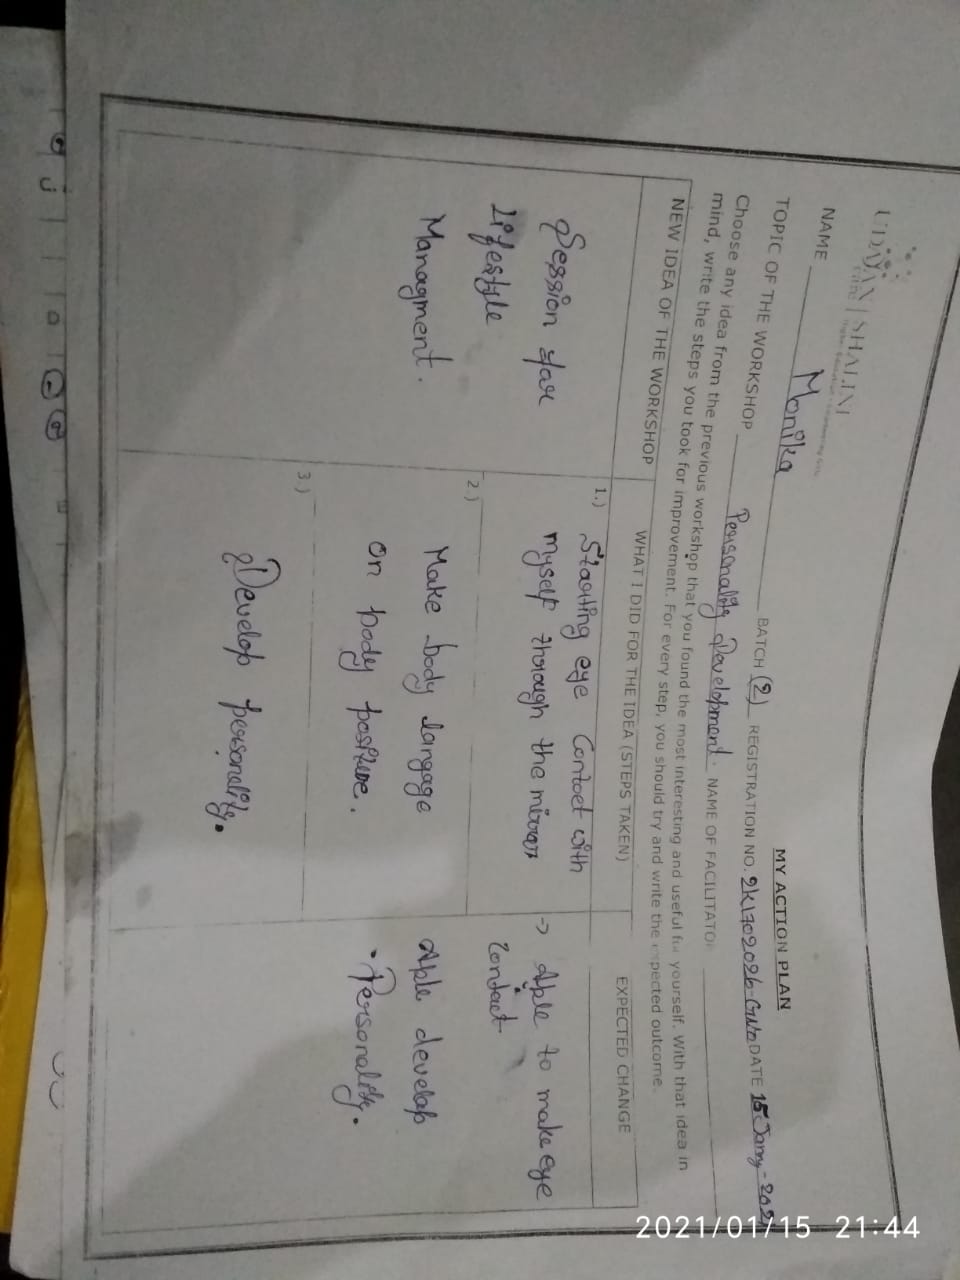 UDAYAN | SHALINI
care
MY ACTION PLAN
NAME Monika BATCH (2) REGISTRATION NO. 2K1702026-GUN DATE 15 Janry-202
TOPIC OF THE WORKSHOP Personality Development. NAME OF FACILITATO
Choose any idea from the previous workshop that you found the most interesting and useful for yourself. With that idea in
mind, write the steps you took for improvement. For every step, you should try and write the expected outcome.
NEW IDEA OF THE WORKSHOP
WHAT I DID FOR THE IDEA (STEPS TAKEN)
EXPECTED CHANGE
Session for
Lifestyle
Managment.
1.) Starting eye Contoct with
myself thorough the mirror
-> Aple to make eye
Contact
2.)
Make body langage
on body positive.
Aple develop
• Personality.
3.)
Develop personality.
2021/01/15 21:44